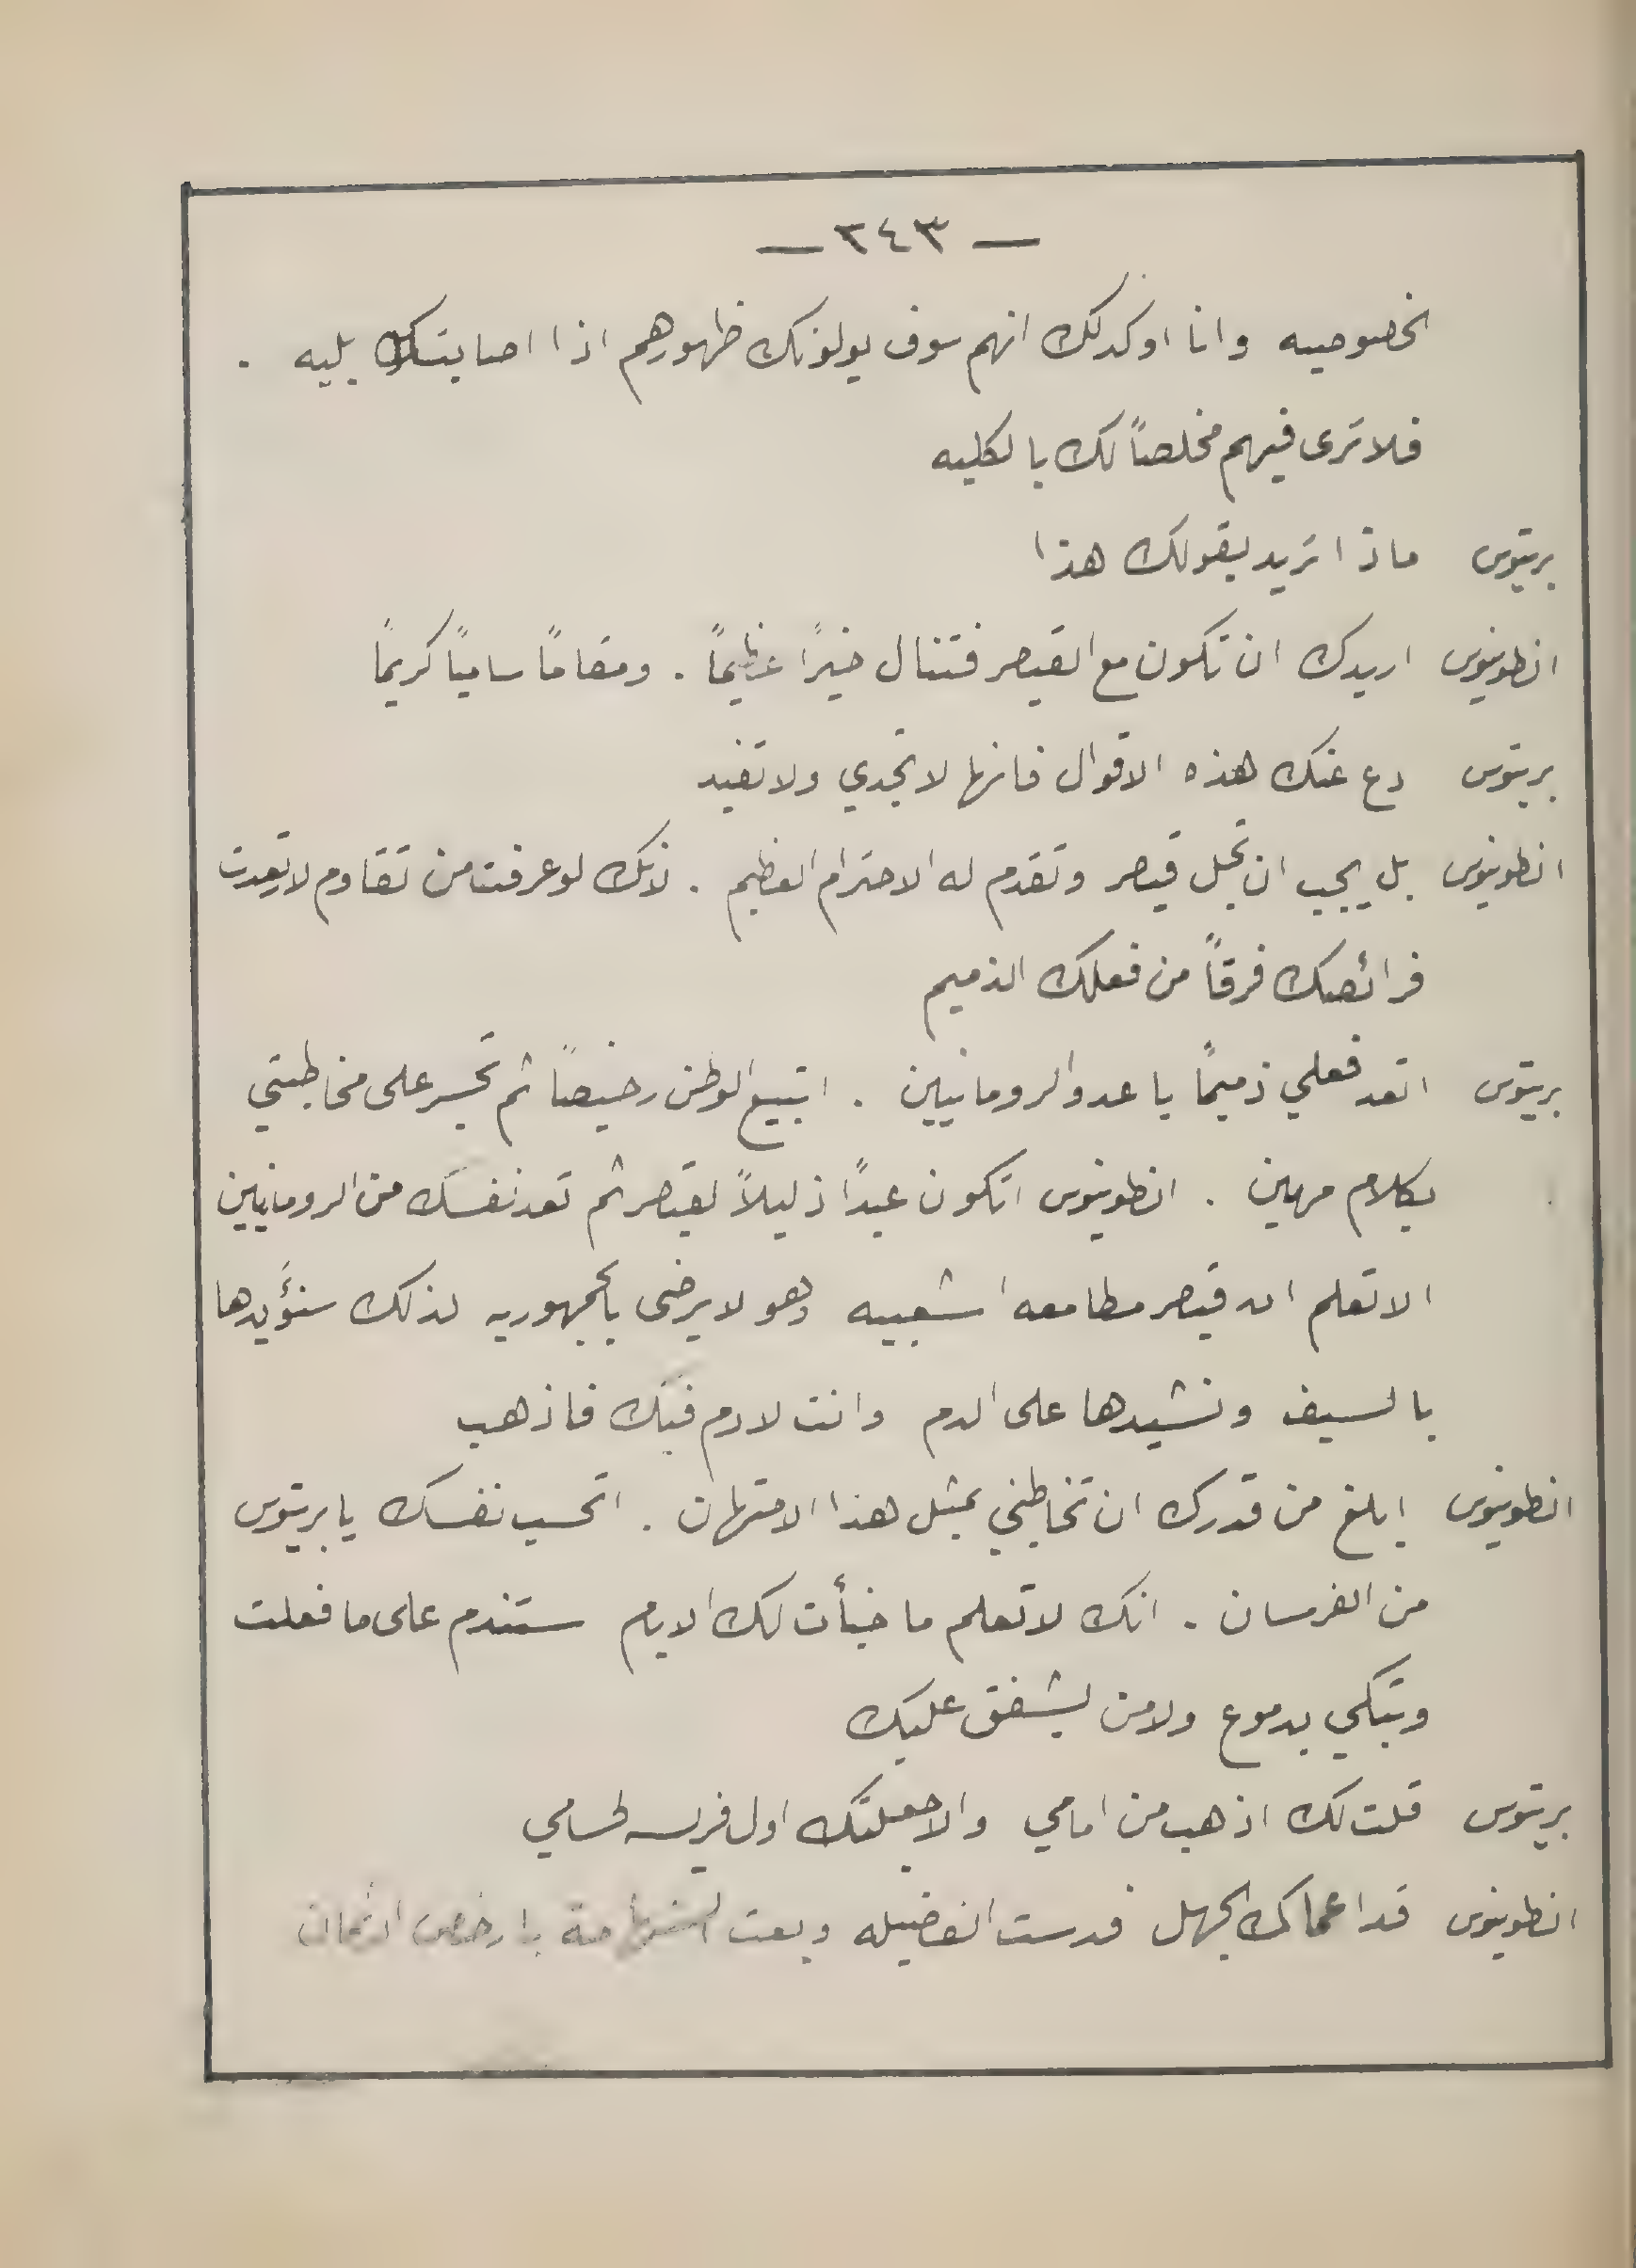 — ٣٤٣ —
الخصوصيه وانا اوكد لك انهم سوف يولونك ظهورهم اذا اصابتك بليه .
فلا ترى فيهم مخلصاً لك بالكليه
بريتوس ماذا تريد بقولك هذا
انطونيوس اريدك ان تكون مع القيصر فتنال خيرًا عظيماً . ومقاماً سامياً كريماً
بريتوس دع عنك هذه الاقوال فانها لا تجدي ولا تفيد
انطونيوس بل يجب ان تجل قيصر وتقدم له الاحترام العظيم . لانك لو عرفت من تقاوم لارتعدت
فرائصك فرقاً من فعلك الذميم
بريتوس اتعد فعلي ذميماً يا عدو الرومانيين . اتبيع الوطن رخيصاً ثم تجسر على مخاطبتي
بكلام مهين . انطونيوس اتكون عبداً ذليلاً لقيصر ثم تعد نفسك من الرومانيين
الا تعلم ان قيصر مطامعه اشعبيه وهو لا يرضى بالجمهوريه لذلك سنؤَيدها
بالسيف ونشيدها على الدم وانت لا دم فيك فاذهب
انطونيوس ابلغ من قدرك ان تخاطبني بمثل هذا الامتهان . اتحسب نفسك يا بريتوس
من الفرسان . انك لا تعلم ما خبأت لك الايام ستندم على ما فعلت
وتبكي بدموع ولا من يشفق عليك
بريتوس قلت لك اذهب من امامي والا جعلتك اول فريسه لحسامي
انطونيوس قد اعماك الجهل فدست الفضيله وبعت بارخص الاثمان